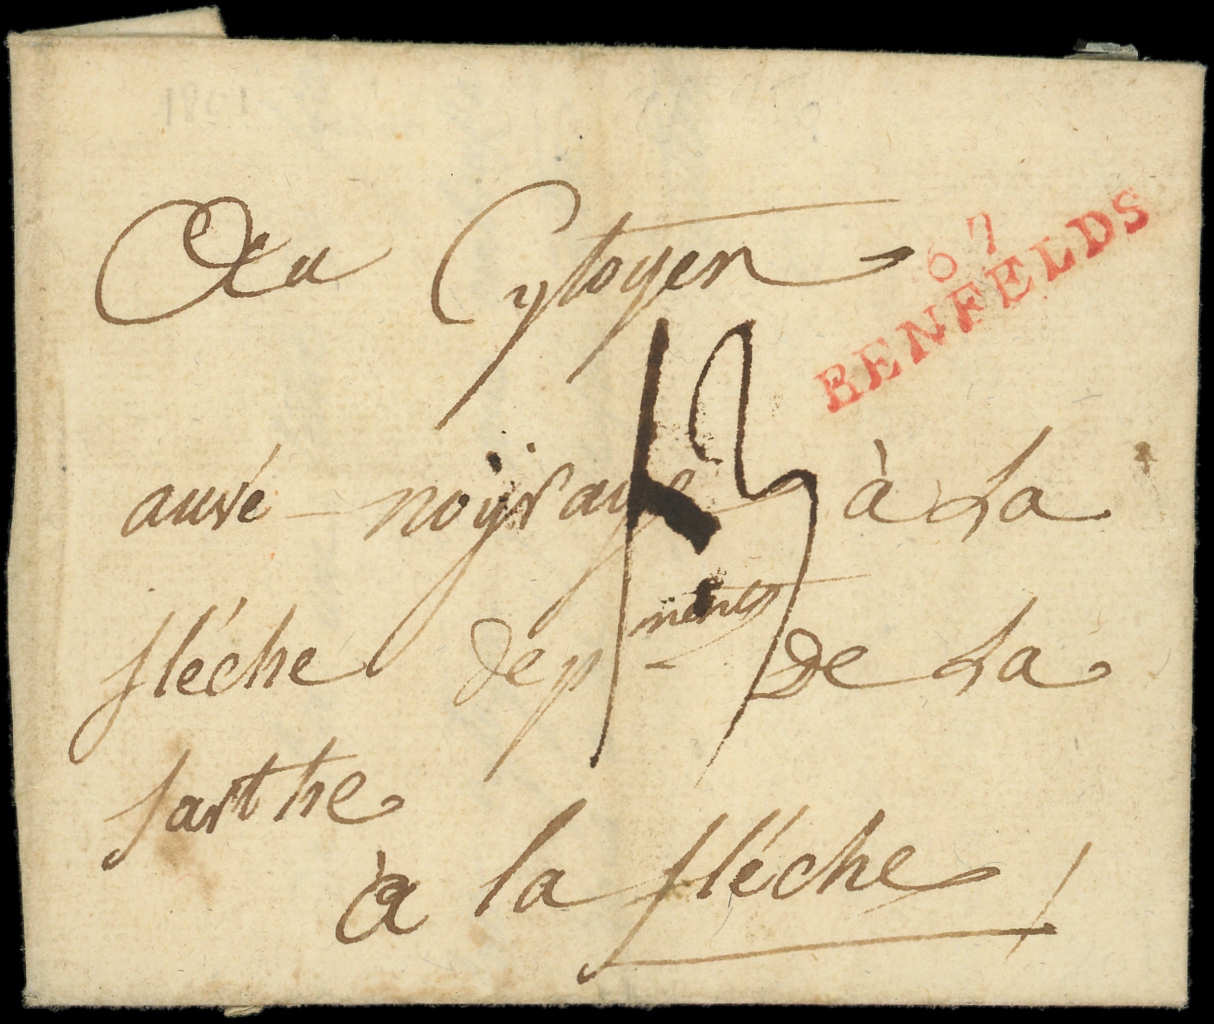 Au Cytoyen
67
BENFELDS
13
auvé noÿraye à La
fléche depments de La
sarthe
à la fléche